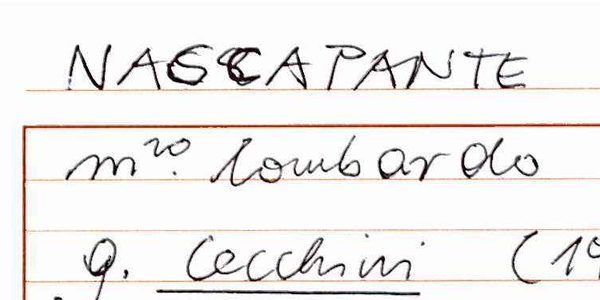 NASCAPANTE
mʳᵒ. lombardo
g. Cecchini (19